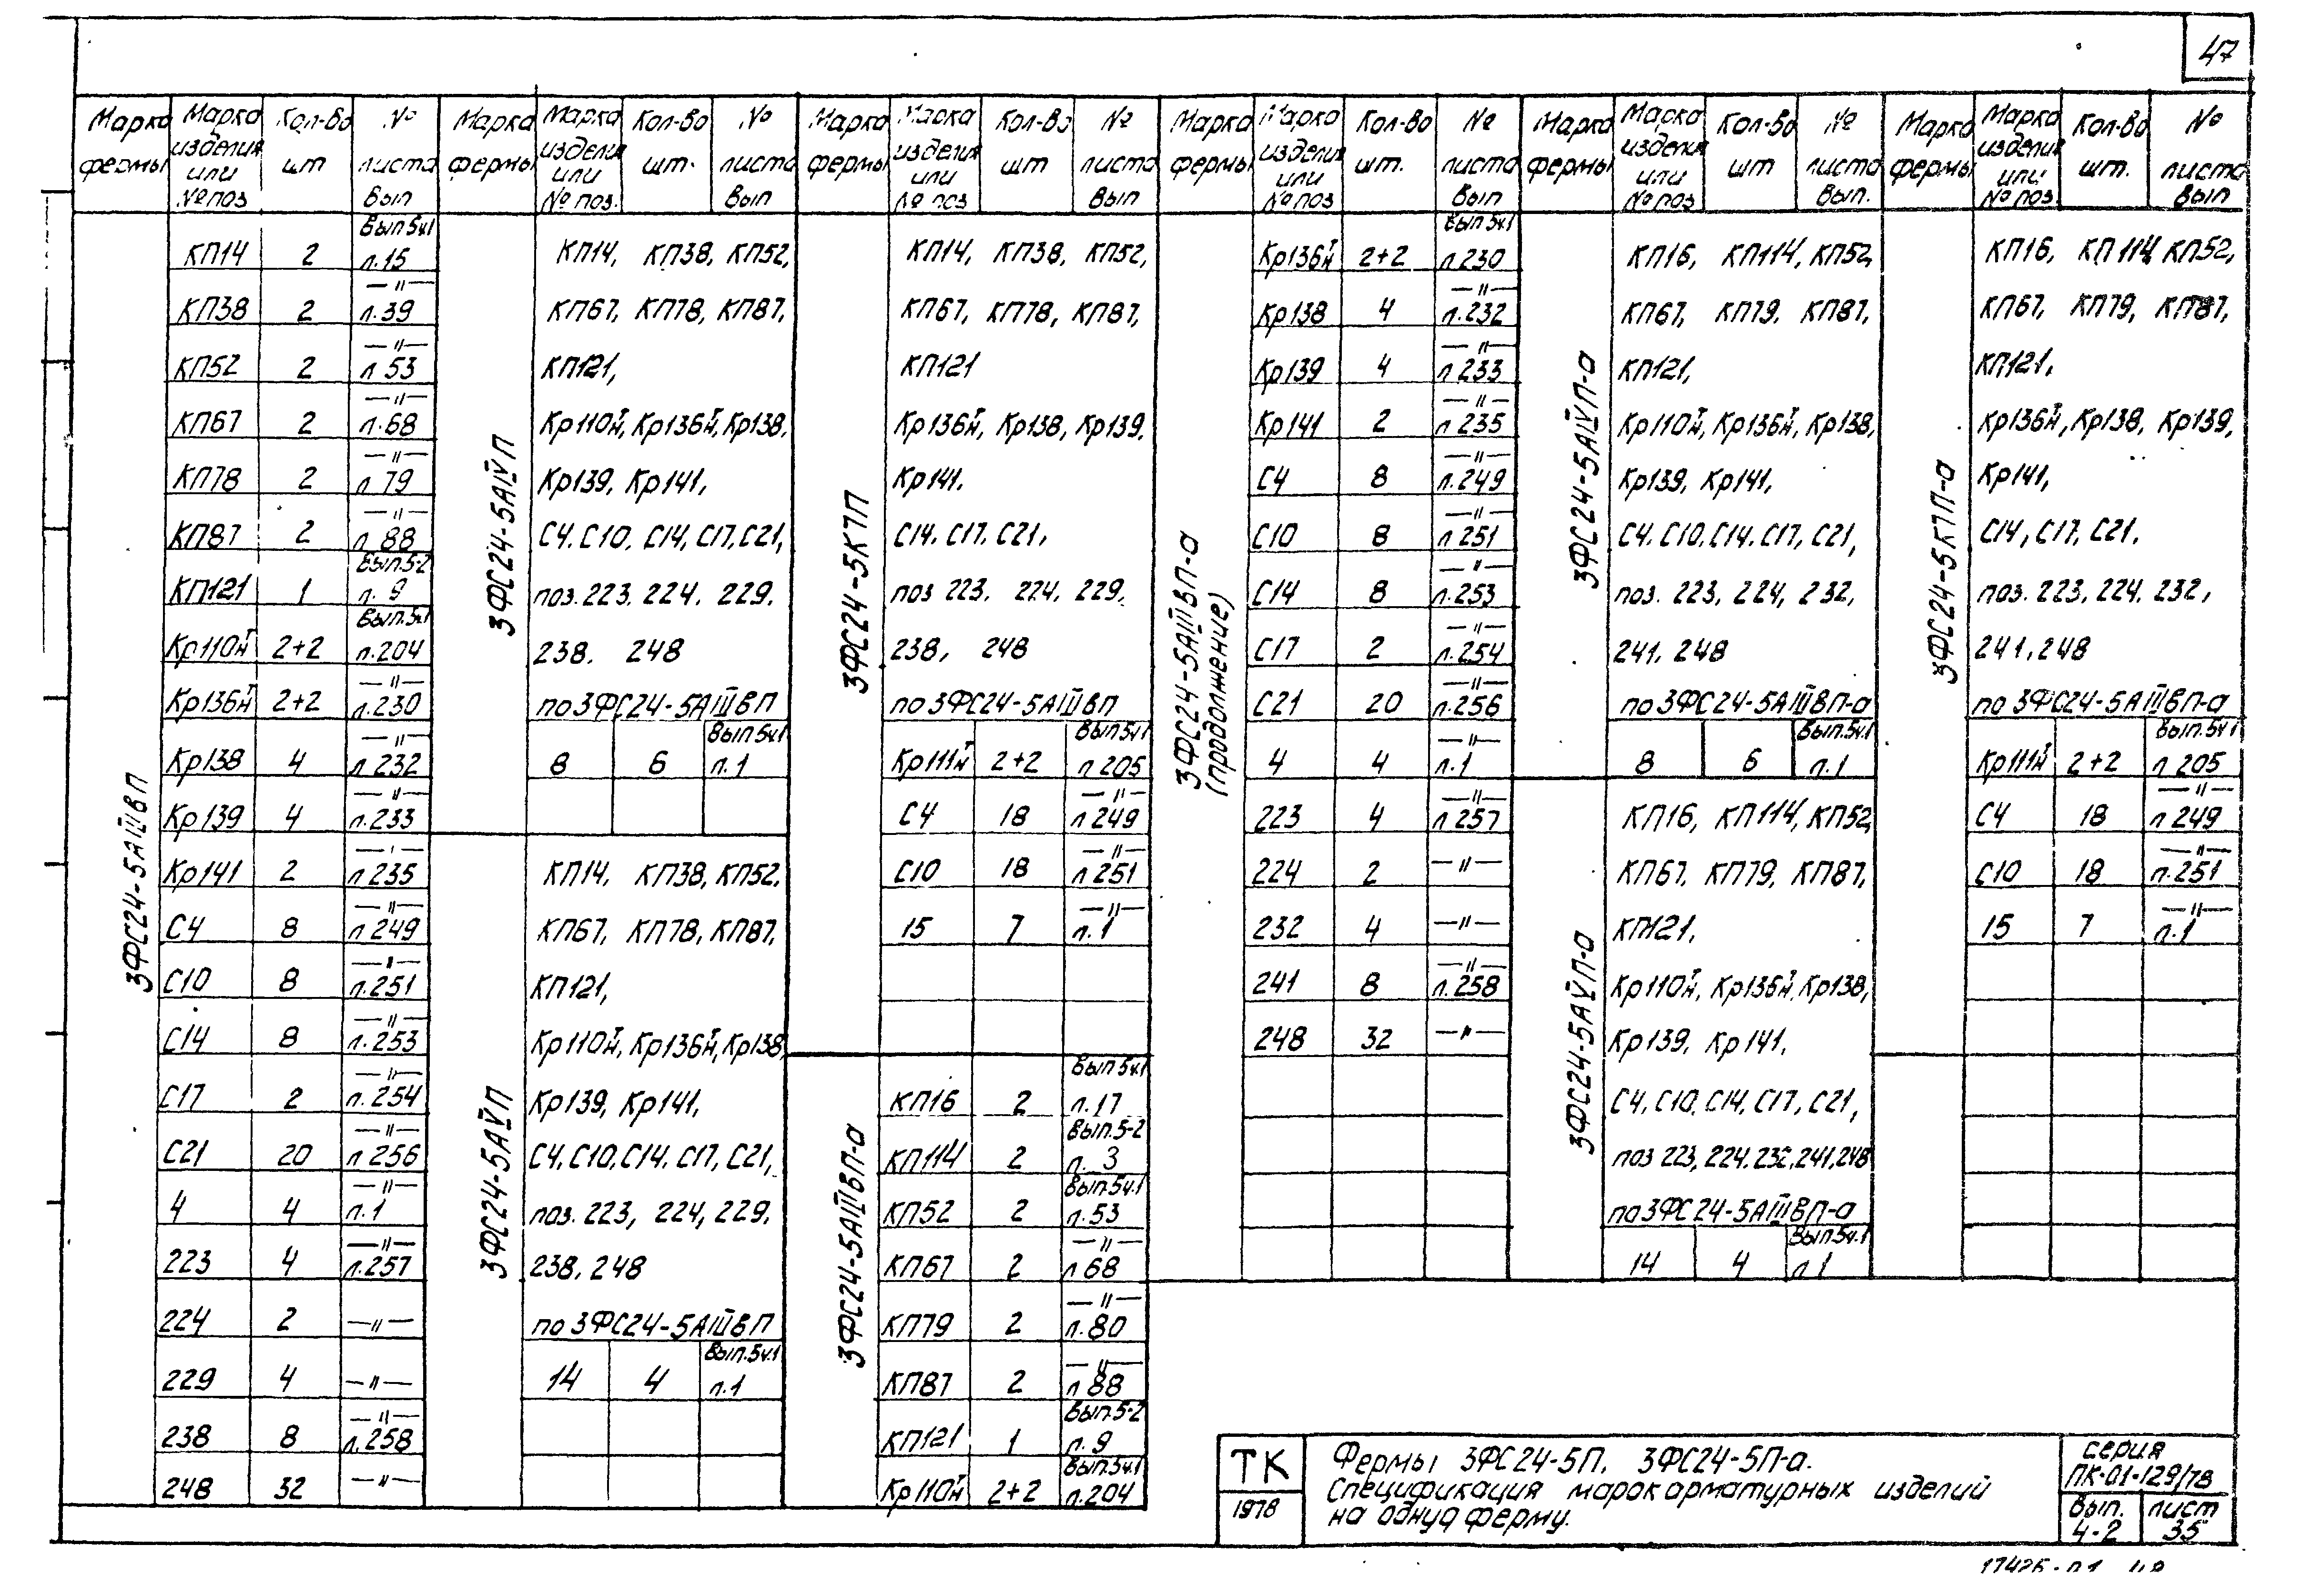 47
Марка фермы | Марка изделия или № поз | Кол-во шт | № листа Вып
3ФС24-5АIIIвП
КП14 2 Вып 5ч.1 л.15
КП38 2 —"— л.39
КП52 2 —"— л 53
КП67 2 —"— л.68
КП78 2 —"— л 79
КП87 2 —"— л 88
КП121 1 Вып.5-2 л. 9
Кр110тн 2+2 Вып.5ч.1 л.204
Кр136тн 2+2 —"— л.230
Кр138 4 —"— л 232
Кр139 4 —"— л.233
Кр141 2 —"— л 235
С4 8 —"— л 249
С10 8 —"— л.251
С14 8 —"— л.253
С17 2 —"— л.254
С21 20 —"— л 256
4 4 —"— л.1
223 4 —"— л.257
224 2 —"—
229 4 —"—
238 8 —"— л.258
248 32 —"—
Марка фермы | Марка изделия или № поз. | Кол-во шт. | № листа Вып
3ФС24-5АIVП
КП14, КП38, КП52,
КП67, КП78, КП87,
КП121,
Кр110тн, Кр136тн, Кр138,
Кр139, Кр141,
С4, С10, С14, С17, С21,
поз. 223, 224, 229,
238, 248
по 3ФС24-5АIIIвП
8 6 Вып 5ч.1 л.1
3ФС24-5АVП
КП14, КП38, КП52,
КП67, КП78, КП87,
КП121,
Кр110тн, Кр136тн, Кр138,
Кр139, Кр141,
С4, С10, С14, С17, С21,
поз. 223, 224, 229,
238, 248
по 3ФС24-5АIIIвП
14 4 Вып.5ч.1 л.1
Марка фермы | Марка изделия или № поз | Кол-во шт | № листа Вып
3ФС24-5К7П
КП14, КП38, КП52,
КП67, КП78, КП87,
КП121
Кр136тн, Кр138, Кр139,
Кр141,
С14, С17, С21,
поз 223, 224, 229,
238, 248
по 3ФС24-5АIIIвП
Кр111тн 2+2 Вып 5ч1 л 205
С4 18 —"— л 249
С10 18 —"— л 251
15 7 —"— л.1
3ФС24-5АIIIвП-а
КП16 2 Вып 5ч.1 л.17
КП114 2 Вып.5-2 л. 3
КП52 2 Вып.5ч.1 л.53
КП67 2 —"— л 68
КП79 2 —"— л.80
КП87 2 —"— л 88
КП121 1 Вып.5-2 л.9
Кр110тн 2+2 Вып.5ч.1 л.204
Марка фермы | Марка изделия или № поз | Кол-во шт. | № листа Вып
3ФС24-5АIIIвП-а
(продолжение)
Кр136тн 2+2 Вып 5ч.1 л 230
Кр138 4 —"— л.232
Кр139 4 —"— л 233
Кр141 2 —"— л 235
С4 8 —"— л.249
С10 8 —"— л 251
С14 8 —"— л.253
С17 2 —"— л.254
С21 20 —"— л.256
4 4 —"— л.1
223 4 —"— л 257
224 2 —"—
232 4 —"—
241 8 —"— л.258
248 32 —"—
Марка фермы | Марка изделия или № поз | Кол-во шт | № листа Вып.
3ФС24-5АIVП-а
КП16, КП114, КП52,
КП67, КП79, КП87,
КП121,
Кр110тн, Кр136тн, Кр138,
Кр139, Кр141,
С4, С10, С14, С17, С21,
поз. 223, 224, 232,
241, 248
по 3ФС24-5АIIIвП-а
8 6 Вып.5ч.1 л.1
3ФС24-5АVП-а
КП16, КП114, КП52,
КП67, КП79, КП87,
КП121,
Кр110тн, Кр136тн, Кр138,
Кр139, Кр141,
С4, С10, С14, С17, С21,
поз 223, 224, 232, 241, 248
по 3ФС24-5АIIIвП-а
14 4 Вып.5ч.1 л 1
Марка фермы | Марка изделия или № поз | Кол-во шт. | № листа Вып
3ФС24-5К7П-а
КП16, КП114, КП52,
КП67, КП79, КП87,
КП121,
Кр136тн, Кр138, Кр139,
Кр141,
С14, С17, С21,
поз. 223, 224, 232,
241, 248
по 3ФС24-5АIIIвП-а
Кр111тн 2+2 Вып.5ч1 л 205
С4 18 —"— л 249
С10 18 —"— л.251
15 7 —"— л.1
ТК
1978
Фермы 3ФС24-5П, 3ФС24-5П-а.
Спецификация марок арматурных изделий
на одну ферму.
серия
ПК-01-129/78
вып. лист
4-2 35